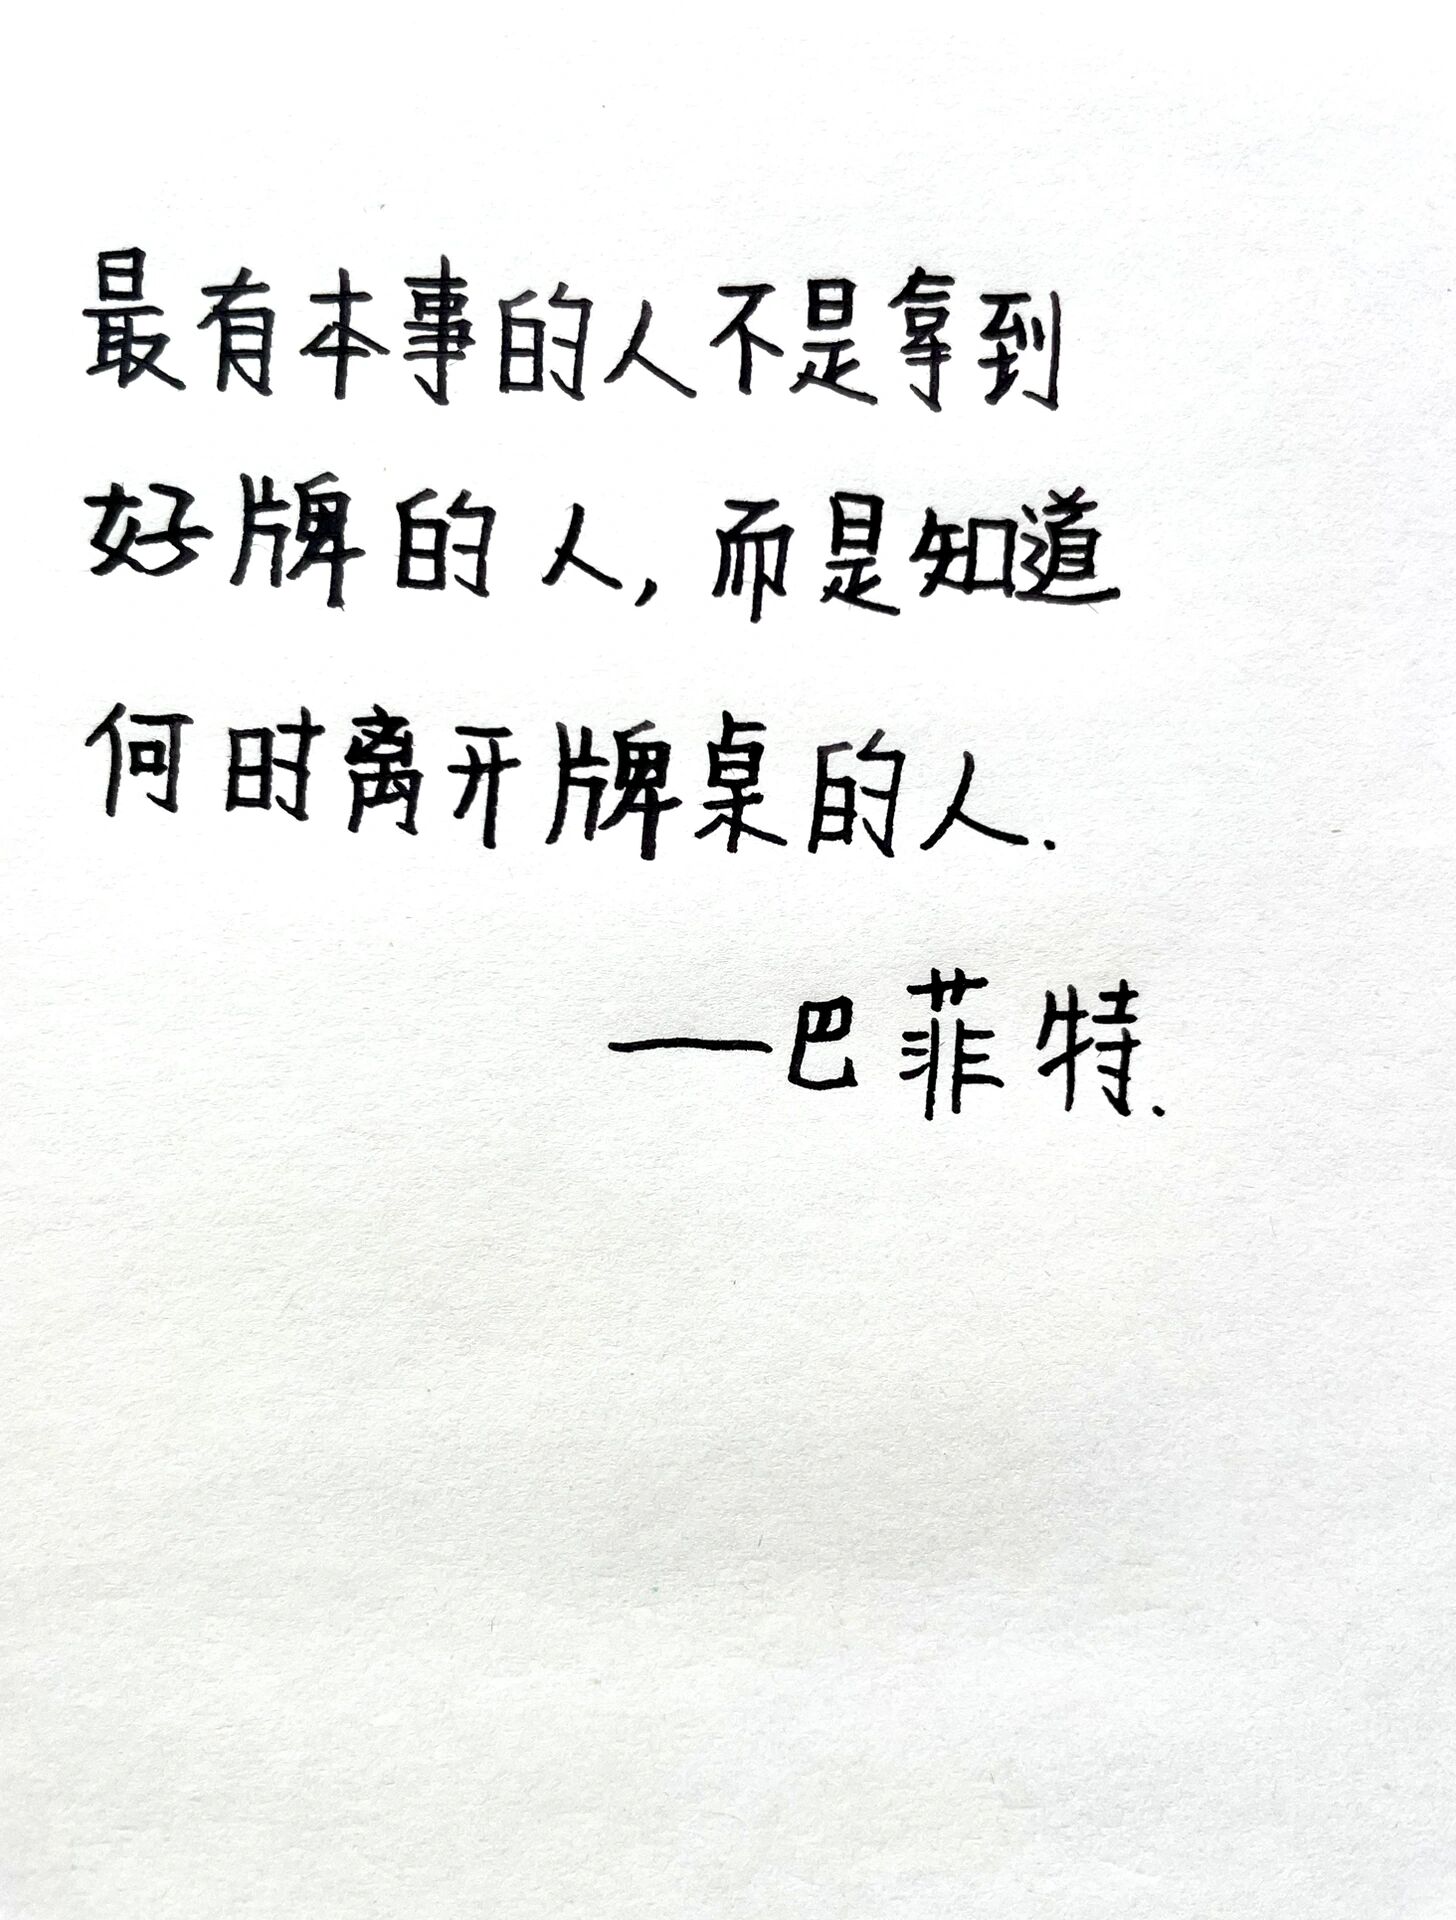 最有本事的人不是拿到
好牌的人,而是知道
何时离开牌桌的人.
—巴菲特.